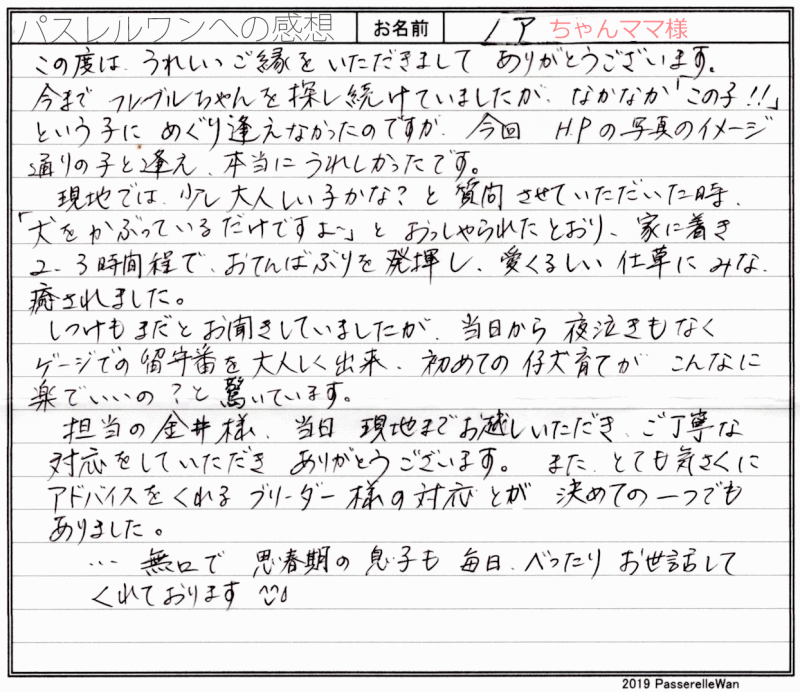 パスレルワンへの感想 お名前 ノア ちゃんママ様
この度は、うれしいご縁をいただきまして ありがとうございます。
今まで フレブルちゃんを探し続けていましたが、なかなか「この子!!」
という子に めぐり逢えなかったのですが、今回 H.Pの写真のイメージ
通りの子と逢え、本当にうれしかったです。
現地では、少し大人しい子かな?と質問させていただいた時、
「犬をかぶっているだけですよ~」と おっしゃられたとおり、家に着き
2-3時間程で、おてんばぶりを発揮し、愛くるしい仕草に みな、
癒されました。
しつけもまだとお聞きしていましたが、当日から 夜泣きもなく
ゲージでの留守番を大人しく出来、初めての仔犬育てが こんなに
楽でいいの?と驚いています。
担当の金井様、当日 現地までお越しいただき、ご丁寧な
対応をしていただき ありがとうございます。また、とても気さくに
アドバイスをくれる ブリーダー様の対応とが 決めての一つでも
ありました。
… 無口で 思春期の息子も 毎日、べったり お世話して
くれております
2019 PasserelleWan